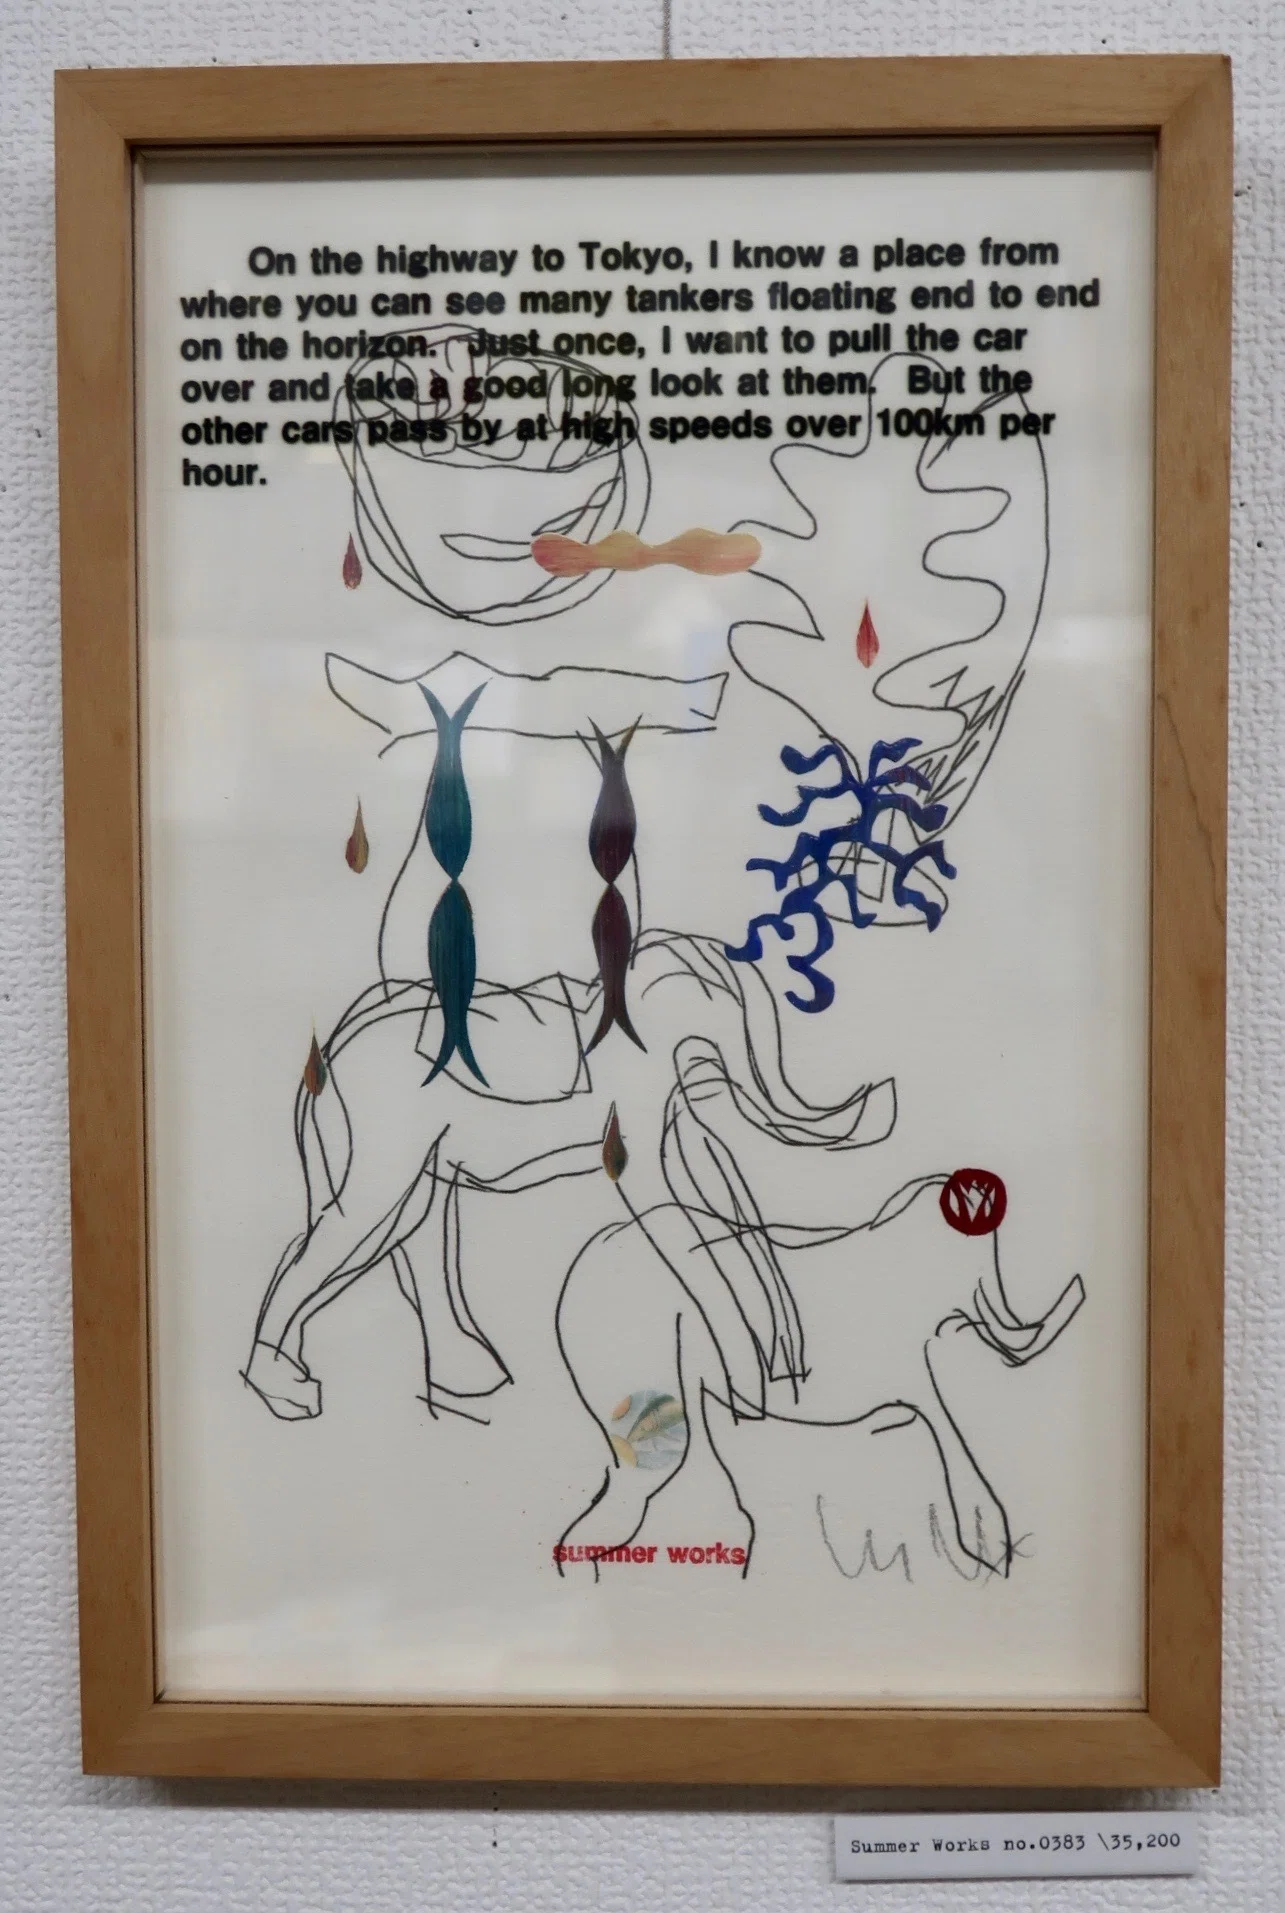 On the highway to Tokyo, I know a place from
where you can see many tankers floating end to end
on the horizon. Just once, I want to pull the car
over and take a good long look at them. But the
other cars pass by at high speeds over 100km per
hour.
summer works
Summer Works no.0383 \35,200